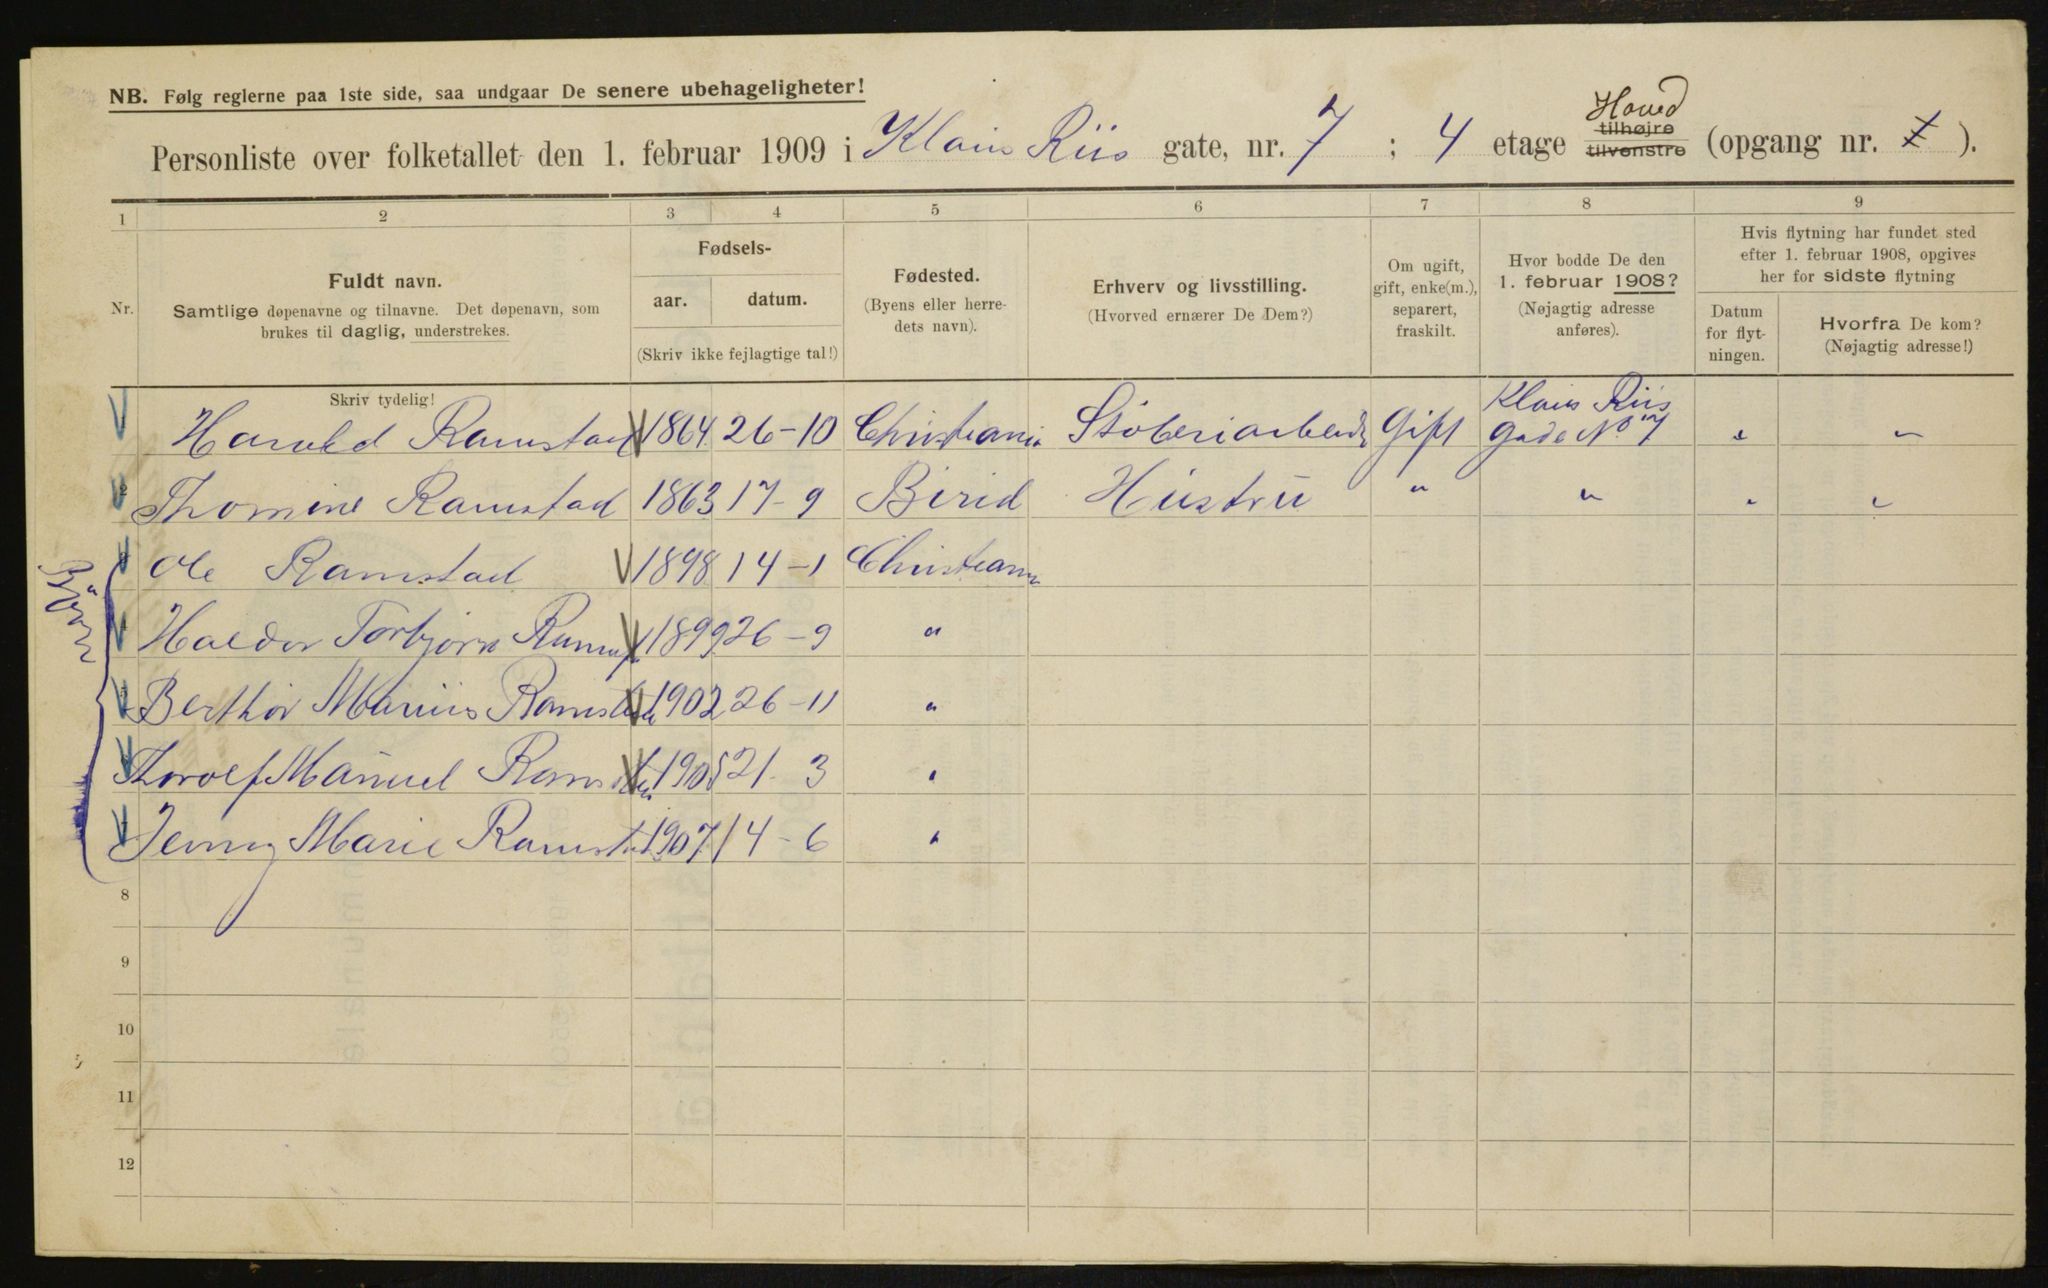 NB. Følg reglerne paa 1ste side, saa undgaar De senere ubehageligheter!
Personliste over folketallet den 1. februar 1909 i Klaus Riis gate, nr. 7 ; 4 etage Hoved tilhøjre tilvenstre (opgang nr. ).
1 2 3 4 5 6 7 8 9
Nr.
Fuldt navn.
Samtlige døpenavne og tilnavne. Det døpenavn, som
brukes til daglig, understrekes.
Fødsels-
aar. datum.
(Skriv ikke fejlagtige tal!)
Fødested.
(Byens eller herre-
dets navn).
Erhverv og livsstilling.
(Hvorved ernærer De Dem?)
Om ugift,
gift, enke(m.),
separert,
fraskilt.
Hvor bodde De den
1. februar 1908?
(Nøjagtig adresse
anføres).
Hvis flytning har fundet sted
efter 1. februar 1908, opgives
her for sidste flytning
Datum
for flyt-
ningen.
Hvorfra De kom?
(Nøjagtig adresse!)
Skriv tydelig!
Harald Ramstad 1864 26-10 Christiania Støberiarbeider Gift Klaus Riis gade No 7 " "
2 Thomine Ramstad 1863 17-9 Birid Hustru " " " "
3 Ole Ramstad 1898 14-1 Christiania
4 Haldor Torbjørn Ramstad 1899 26-9 "
5 Berthor Marius Ramstad 1902 26-11 "
Thorolf Manuel Ramstad 1905 21.3 "
7 Jenny Marie Ramstad 1907 14-6 "
Børn
8
9
10
11
12